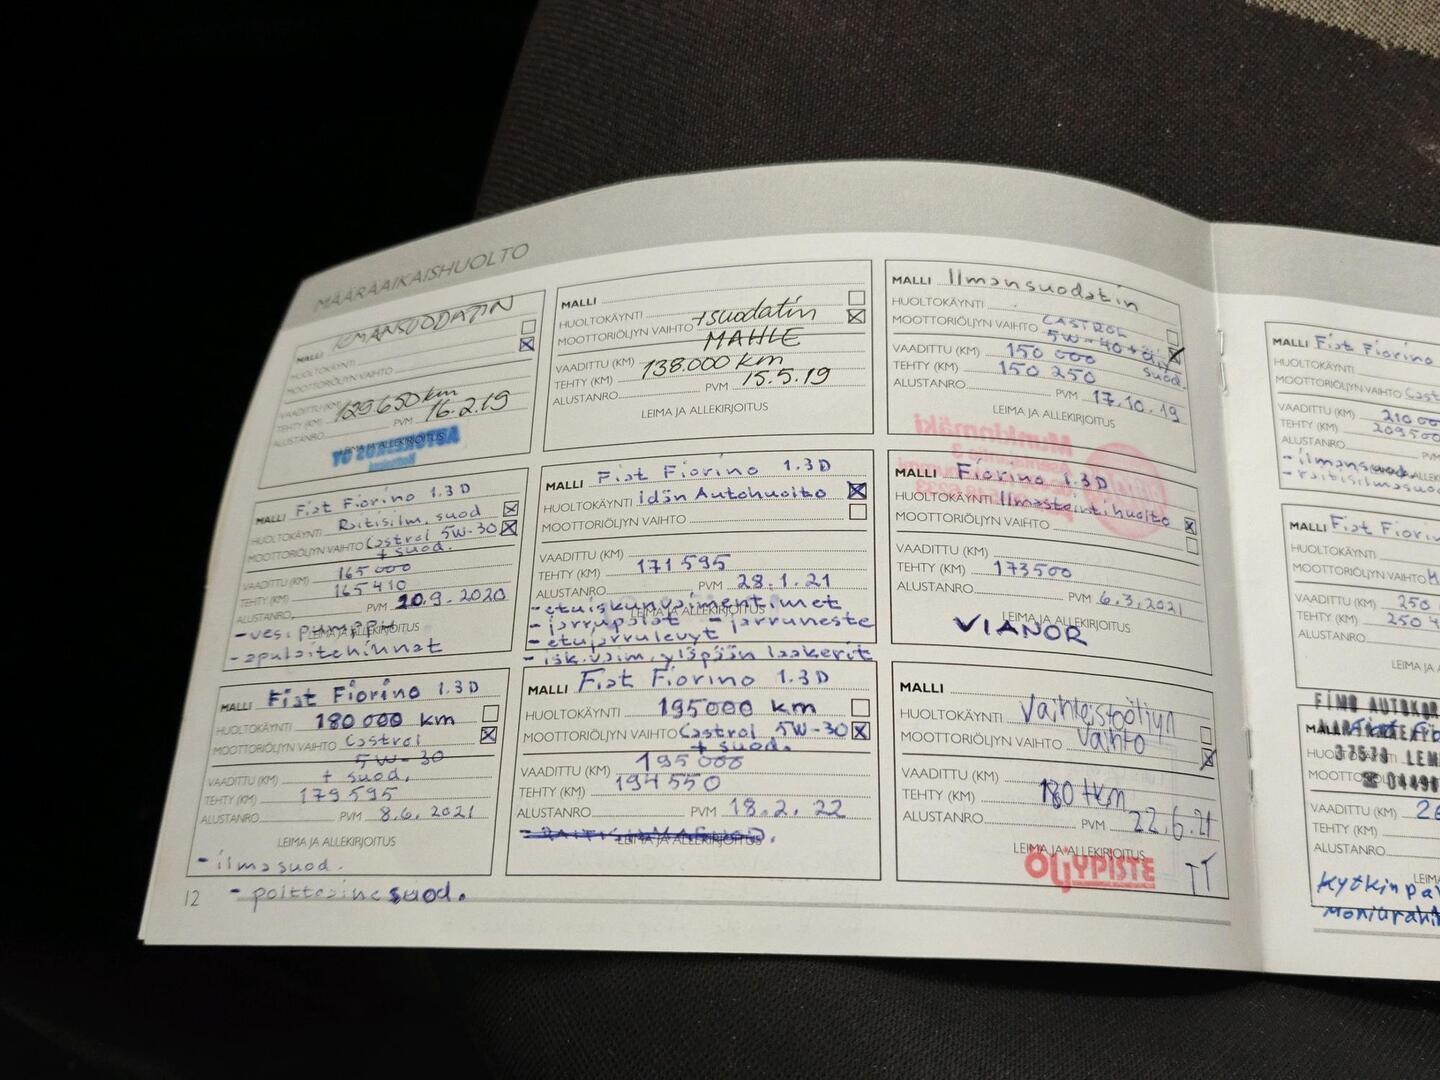 MÄÄRÄAIKAISHUOLTO
MALLI ILMANSUODATIN
HUOLTOKÄYNTI
MOOTTORIÖLJYN VAIHTO
VAADITTU (KM)
TEHTY (KM) 129650 km
ALUSTANRO PVM 16.2.19
LEIMA JA ALLEKIRJOITUS
MALLI
HUOLTOKÄYNTI
MOOTTORIÖLJYN VAIHTO +suodatin
MAHLE
VAADITTU (KM)
TEHTY (KM) 138.000 km
ALUSTANRO PVM 15.5.19
LEIMA JA ALLEKIRJOITUS
MALLI Ilmansuodatin
HUOLTOKÄYNTI
MOOTTORIÖLJYN VAIHTO CASTROL
5W-40 + öljy
suod.
VAADITTU (KM) 150 000
TEHTY (KM) 150 250
ALUSTANRO PVM 17.10.19
LEIMA JA ALLEKIRJOITUS
MALLI Fiat Fiorino 1.3D
HUOLTOKÄYNTI Raitisilm. suod
MOOTTORIÖLJYN VAIHTO Castrol 5W-30
+ suod.
VAADITTU (KM) 165000
TEHTY (KM) 165410
ALUSTANRO PVM 20.9.2020
LEIMA JA ALLEKIRJOITUS
- vesipumppu
- apulaitehihnat
MALLI Fiat Fiorino 1.3D
HUOLTOKÄYNTI Idän Autohuolto
MOOTTORIÖLJYN VAIHTO
VAADITTU (KM)
TEHTY (KM) 171595
ALUSTANRO PVM 28.1.21
LEIMA JA ALLEKIRJOITUS
- etuiskunvaimentimet
- jarrupalat - jarruneste
- etujarrulevyt
- isk.vaim. yläpään laakerit
MALLI Fiorino 1.3D
HUOLTOKÄYNTI Ilmastointihuolto
MOOTTORIÖLJYN VAIHTO
VAADITTU (KM)
TEHTY (KM) 173500
ALUSTANRO PVM 6.3.2021
LEIMA JA ALLEKIRJOITUS
VIANOR
MALLI Fiat Fiorino 1.3D
HUOLTOKÄYNTI 180 000 km
MOOTTORIÖLJYN VAIHTO Castrol
5W-30
VAADITTU (KM) + suod.
TEHTY (KM) 179595
ALUSTANRO PVM 8.6.2021
LEIMA JA ALLEKIRJOITUS
- ilmasuod.
- polttoainesuod.
MALLI Fiat Fiorino 1.3D
HUOLTOKÄYNTI 195000 km
MOOTTORIÖLJYN VAIHTO Castrol 5W-30
+ suod.
VAADITTU (KM) 195000
TEHTY (KM) 194550
ALUSTANRO PVM 18.2.22
LEIMA JA ALLEKIRJOITUS
MALLI
HUOLTOKÄYNTI Vaihteistoöljyn
MOOTTORIÖLJYN VAIHTO vaihto
VAADITTU (KM)
TEHTY (KM) 180 tkm
ALUSTANRO PVM 22.6.21
LEIMA JA ALLEKIRJOITUS
ÖLJYPISTE TT
12
MALLI Fiat Fiorino
HUOLTOKÄYNTI
MOOTTORIÖLJYN VAIHTO
VAADITTU (KM)
TEHTY (KM) 209500
ALUSTANRO
MALLI
HUOLTOKÄYNTI
MOOTTORIÖLJYN VAIHTO
VAADITTU (KM)
TEHTY (KM)
ALUSTANRO
VAADITTU (KM)
TEHTY (KM)
ALUSTANRO